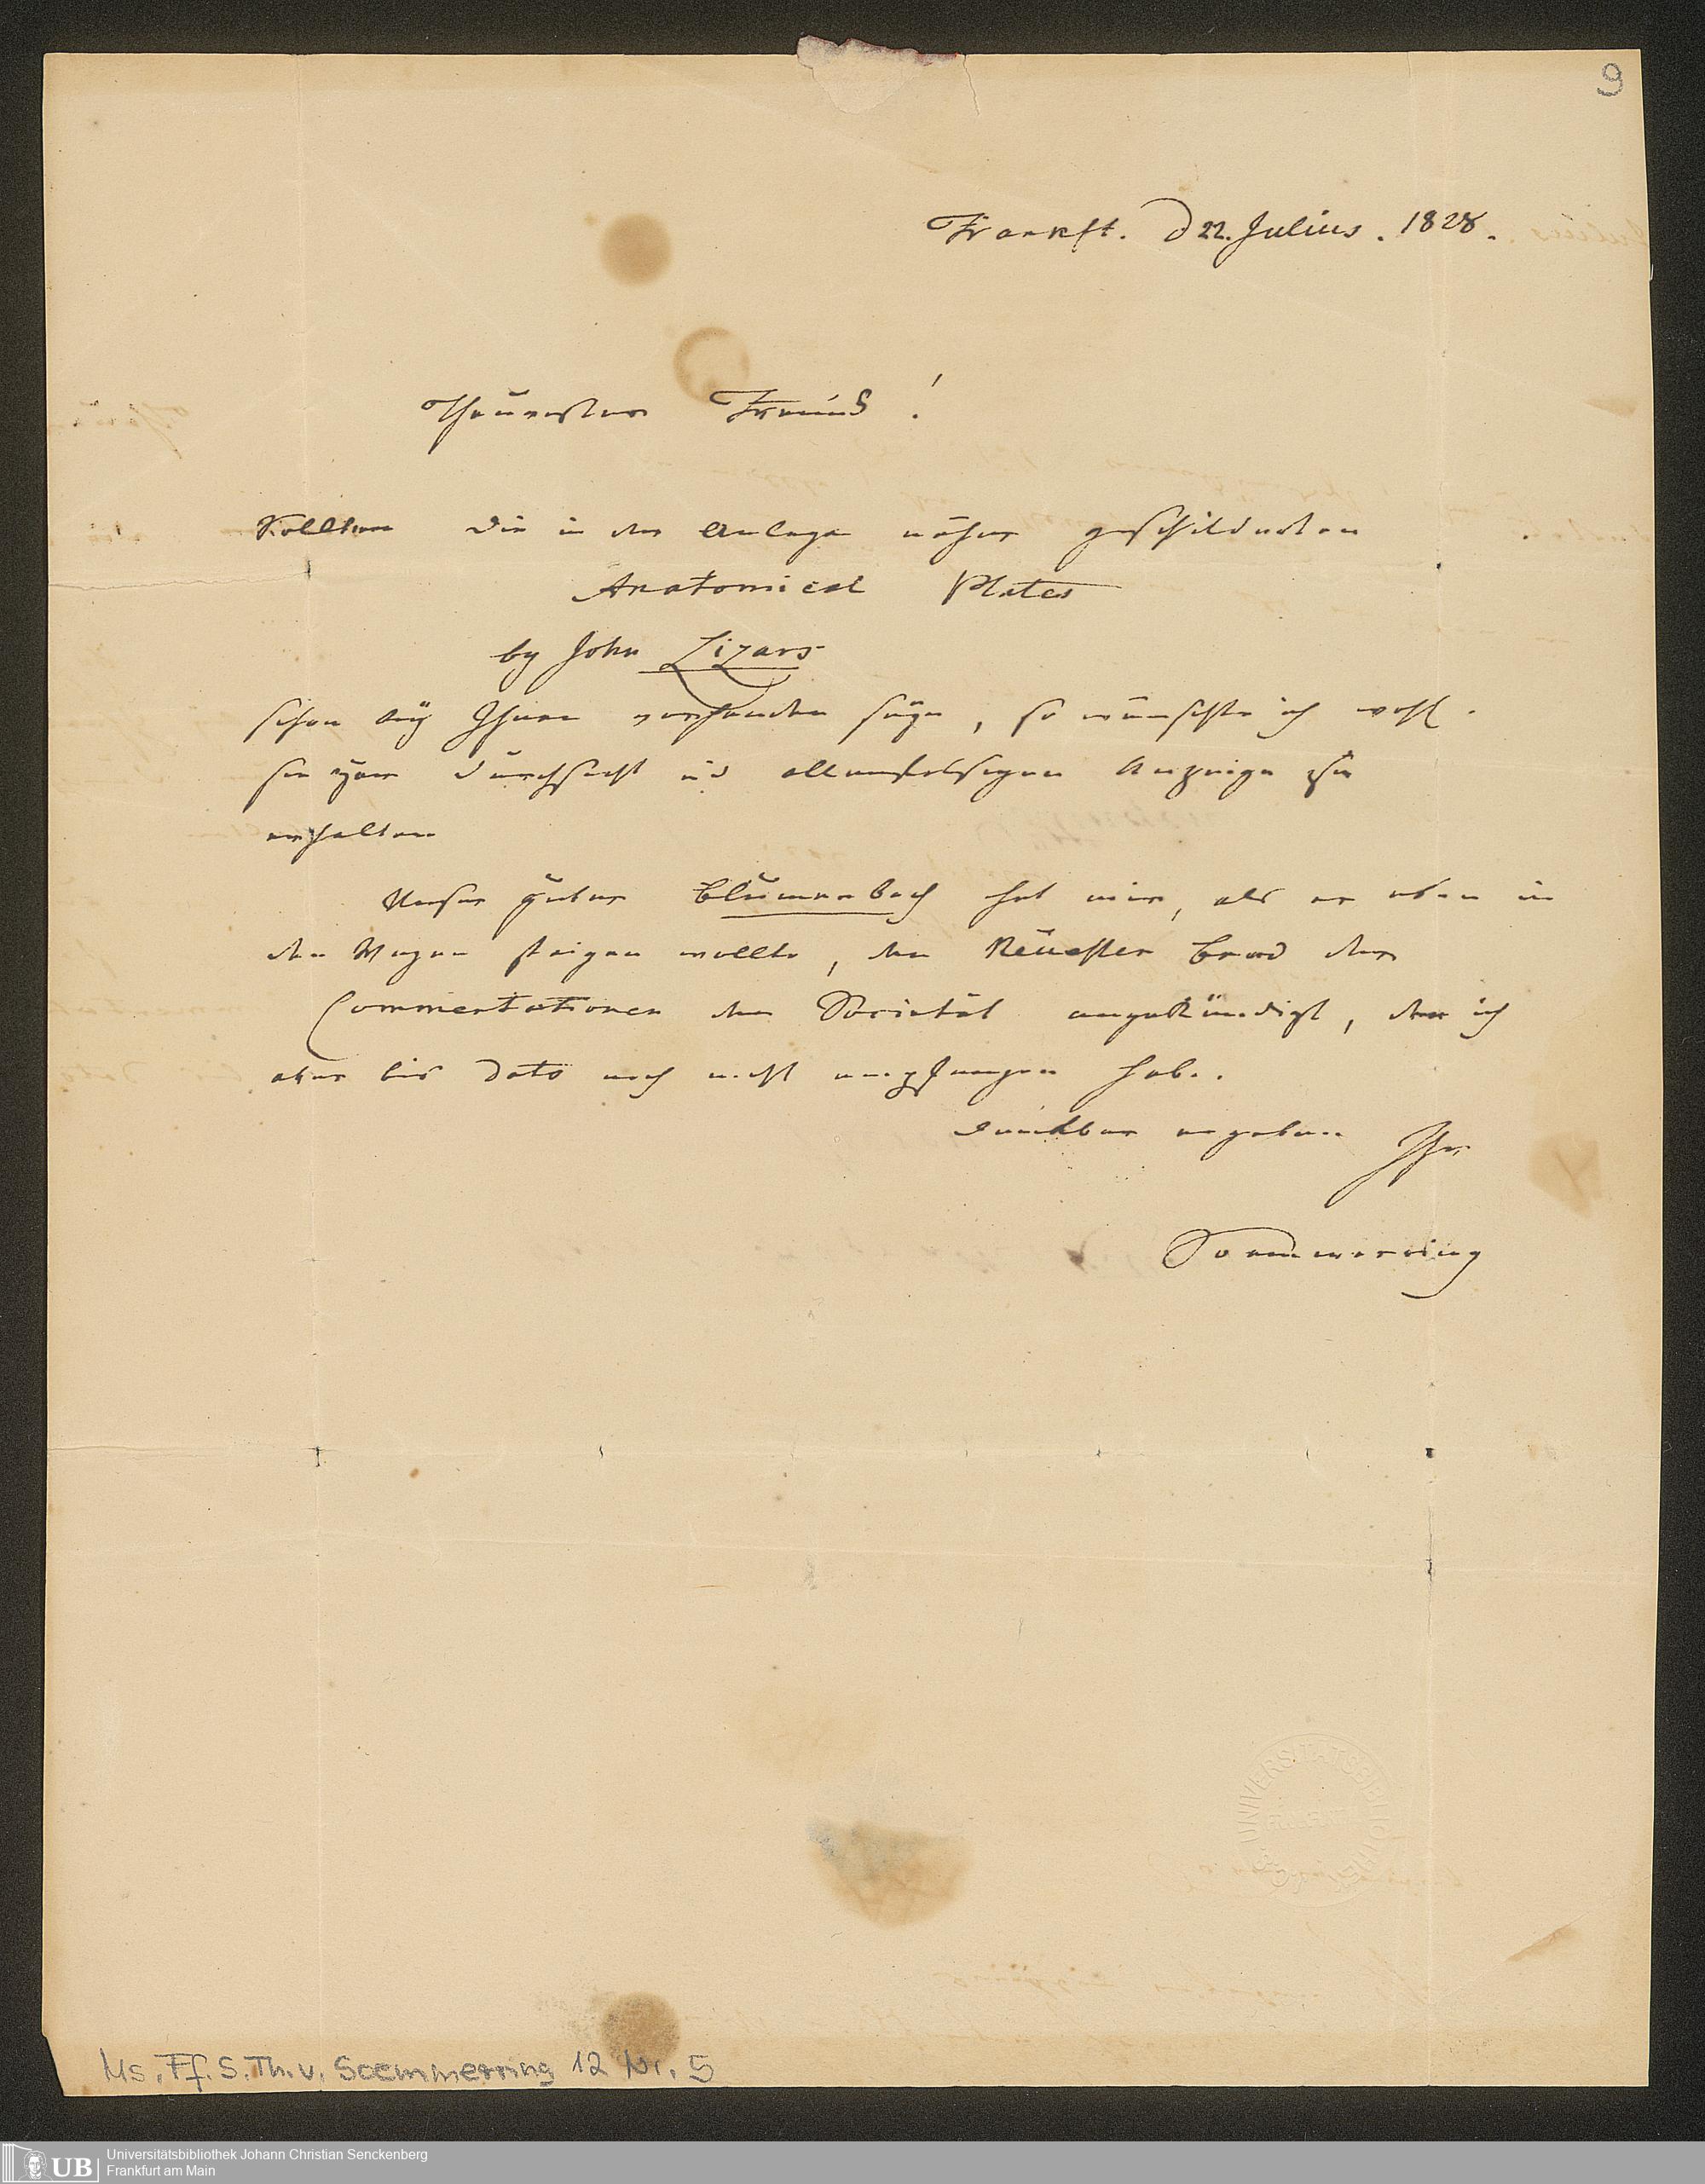 9
Frankft. d 22. Julius. 1828.
Theurester Freund!
Sollten die in der Anlage näher geschilderten
Anatomical Plates
by John Lizars
schon bey Ihnen vorhanden seyn, so wünschte ich wohl
sie zur Durchsicht und allenfalsigen Anzeige zu
erhalten
Unser guter Blumenbach hat mir, als er eben in
den Wagen steigen wollte, den Neuesten Band der
Commentationen der Societät angekündigt, den ich
aber bis dato noch nicht empfangen habe.
dankbar ergeben Ihr
Soemmerring
UNIVERSITÄTSBIBLIOTHEK
Ms. Ff. S. Th. v. Soemmerring 12 Nr. 5
UB
Universitätsbibliothek Johann Christian Senckenberg
Frankfurt am Main